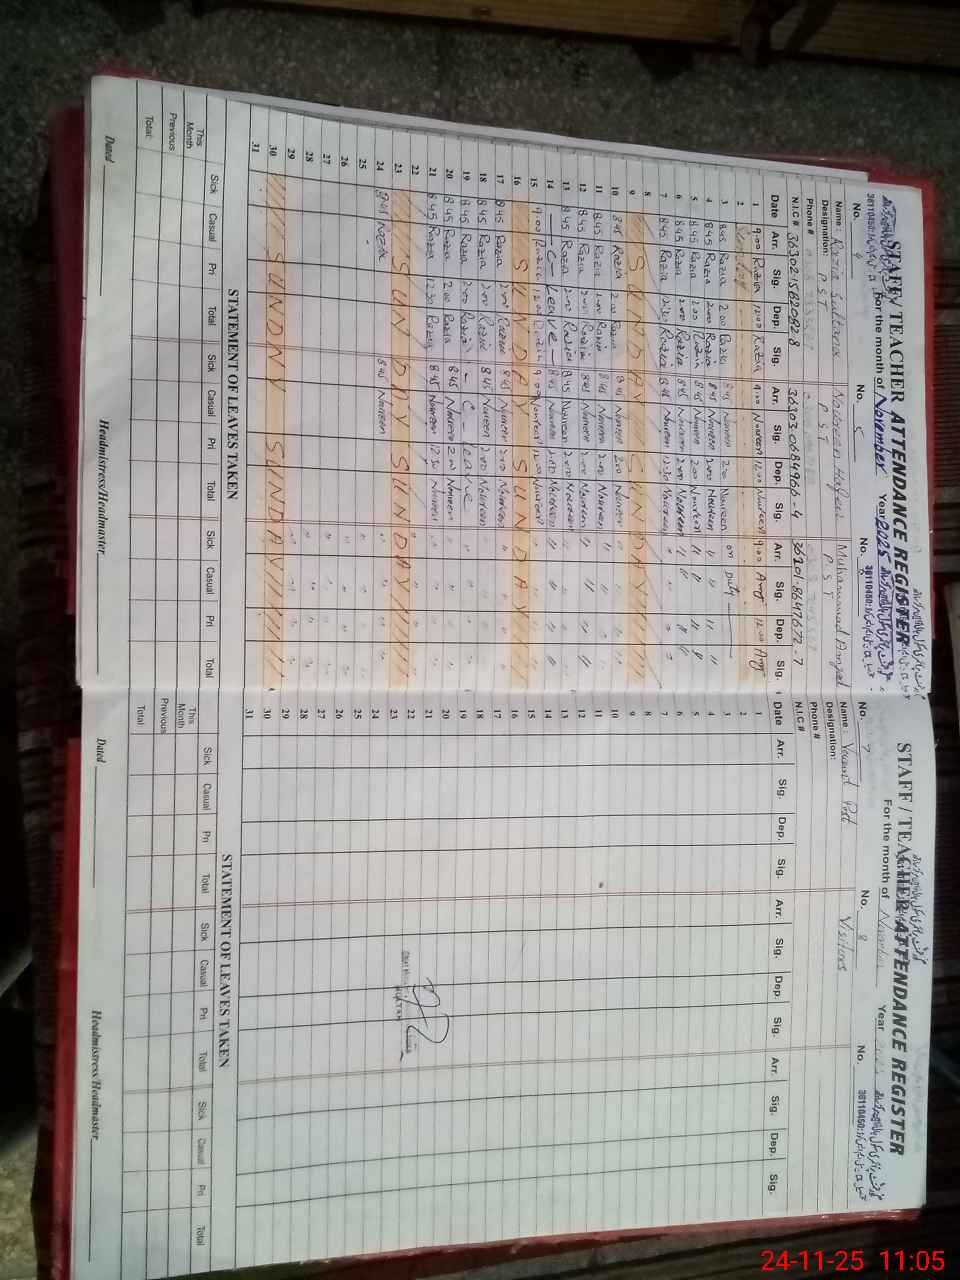 STAFF / TEACHER ATTENDANCE REGISTER
For the month of November Year 2025
38110450
No. 4 No. 5 No. 6
Name: Razia Sultana Muhammad Amjad
Designation: P S T P S T P S T
Phone #
N.I.C # 36302-1582082-8 36303-0684966-4 36201-8647672-7
Date Arr. Sig. Dep. Sig. Arr. Sig. Dep. Sig. Arr. Sig. Dep. Sig.
1 9:00 Razia 12:00 Razia 9:00 Noureen 12:00 Noureen 9:00 Amj 12:00 Amj
2 Sunday
3 8:45 Razia 2:00 Razia 8:45 Noureen 2:00 Noureen on duty
4 8:45 Razia 2:00 Razia 8:45 Noureen 2:00 Noureen 〃 〃 〃
5 8:45 Razia 2:00 Razia 8:45 Noureen 2:00 Noureen 〃 〃 〃
6 8:45 Razia 2:00 Razia 8:45 Noureen 2:00 Noureen 〃 〃 〃
7 8:45 Razia 12:30 Razia 8:45 Noureen 12:30 Noureen 〃 〃 〃
8
9 SUNDAY SUNDAY
10 8:45 Razia 2:00 Razia 8:45 Noureen 2:00 Noureen
11 8:45 Razia 2:00 Razia 8:45 Noureen 2:00 Noureen 〃 〃
12 8:45 Razia 2:00 Razia 8:45 Noureen 2:00 Noureen 〃 〃 〃
13 8:45 Razia 2:00 Razia 8:45 Noureen 2:00 Noureen
14 — C - Leave — 8:45 Noureen 2:00 Noureen 〃 〃 〃 〃
15 9:00 Razia 12:00 Razia 9:00 Noureen 12:00 Noureen
16 SUNDAY SUNDAY
17 8:45 Razia 2:00 Razia 8:45 Noureen 2:00 Noureen
18 8:45 Razia 2:00 Razia 8:45 Noureen 2:00 Noureen
19 8:45 Razia 2:00 Razia - C - Leave
20 8:45 Razia 2:00 Razia 8:45 Noureen 2:00 Noureen
21 8:45 Razia 12:30 Razia 8:45 Noureen 12:30 Noureen
22
23 SUNDAY SUNDAY
24 8:45 Razia 8:45 Noureen
25
26
27
28
29
30 SUNDAY SUNDAY
31
STATEMENT OF LEAVES TAKEN
Sick Casual Pri Total Sick Casual Pri Total Sick Casual Pri Total
This Month
Previous
Total:
Dated Headmistress/Headmaster
STAFF / TEACHER ATTENDANCE REGISTER
For the month of November Year
38110450
No. 7 No. 8 No.
Name: Vacant Post Visitors
Designation:
Phone #
N.I.C #
Date Arr. Sig. Dep. Sig. Arr. Sig. Dep. Sig. Arr. Sig. Dep. Sig.
1
2
3
4
5
6
7
8
9
10
11
12
13
14
15
16
17
18
19
20
21
22
23
24
25
26
27
28
29
30
31
STATEMENT OF LEAVES TAKEN
Sick Casual Pri Total Sick Casual Pri Total Sick Casual Pri Total
This Month
Previous
Total:
Dated Headmistress/Headmaster
24-11-25 11:05